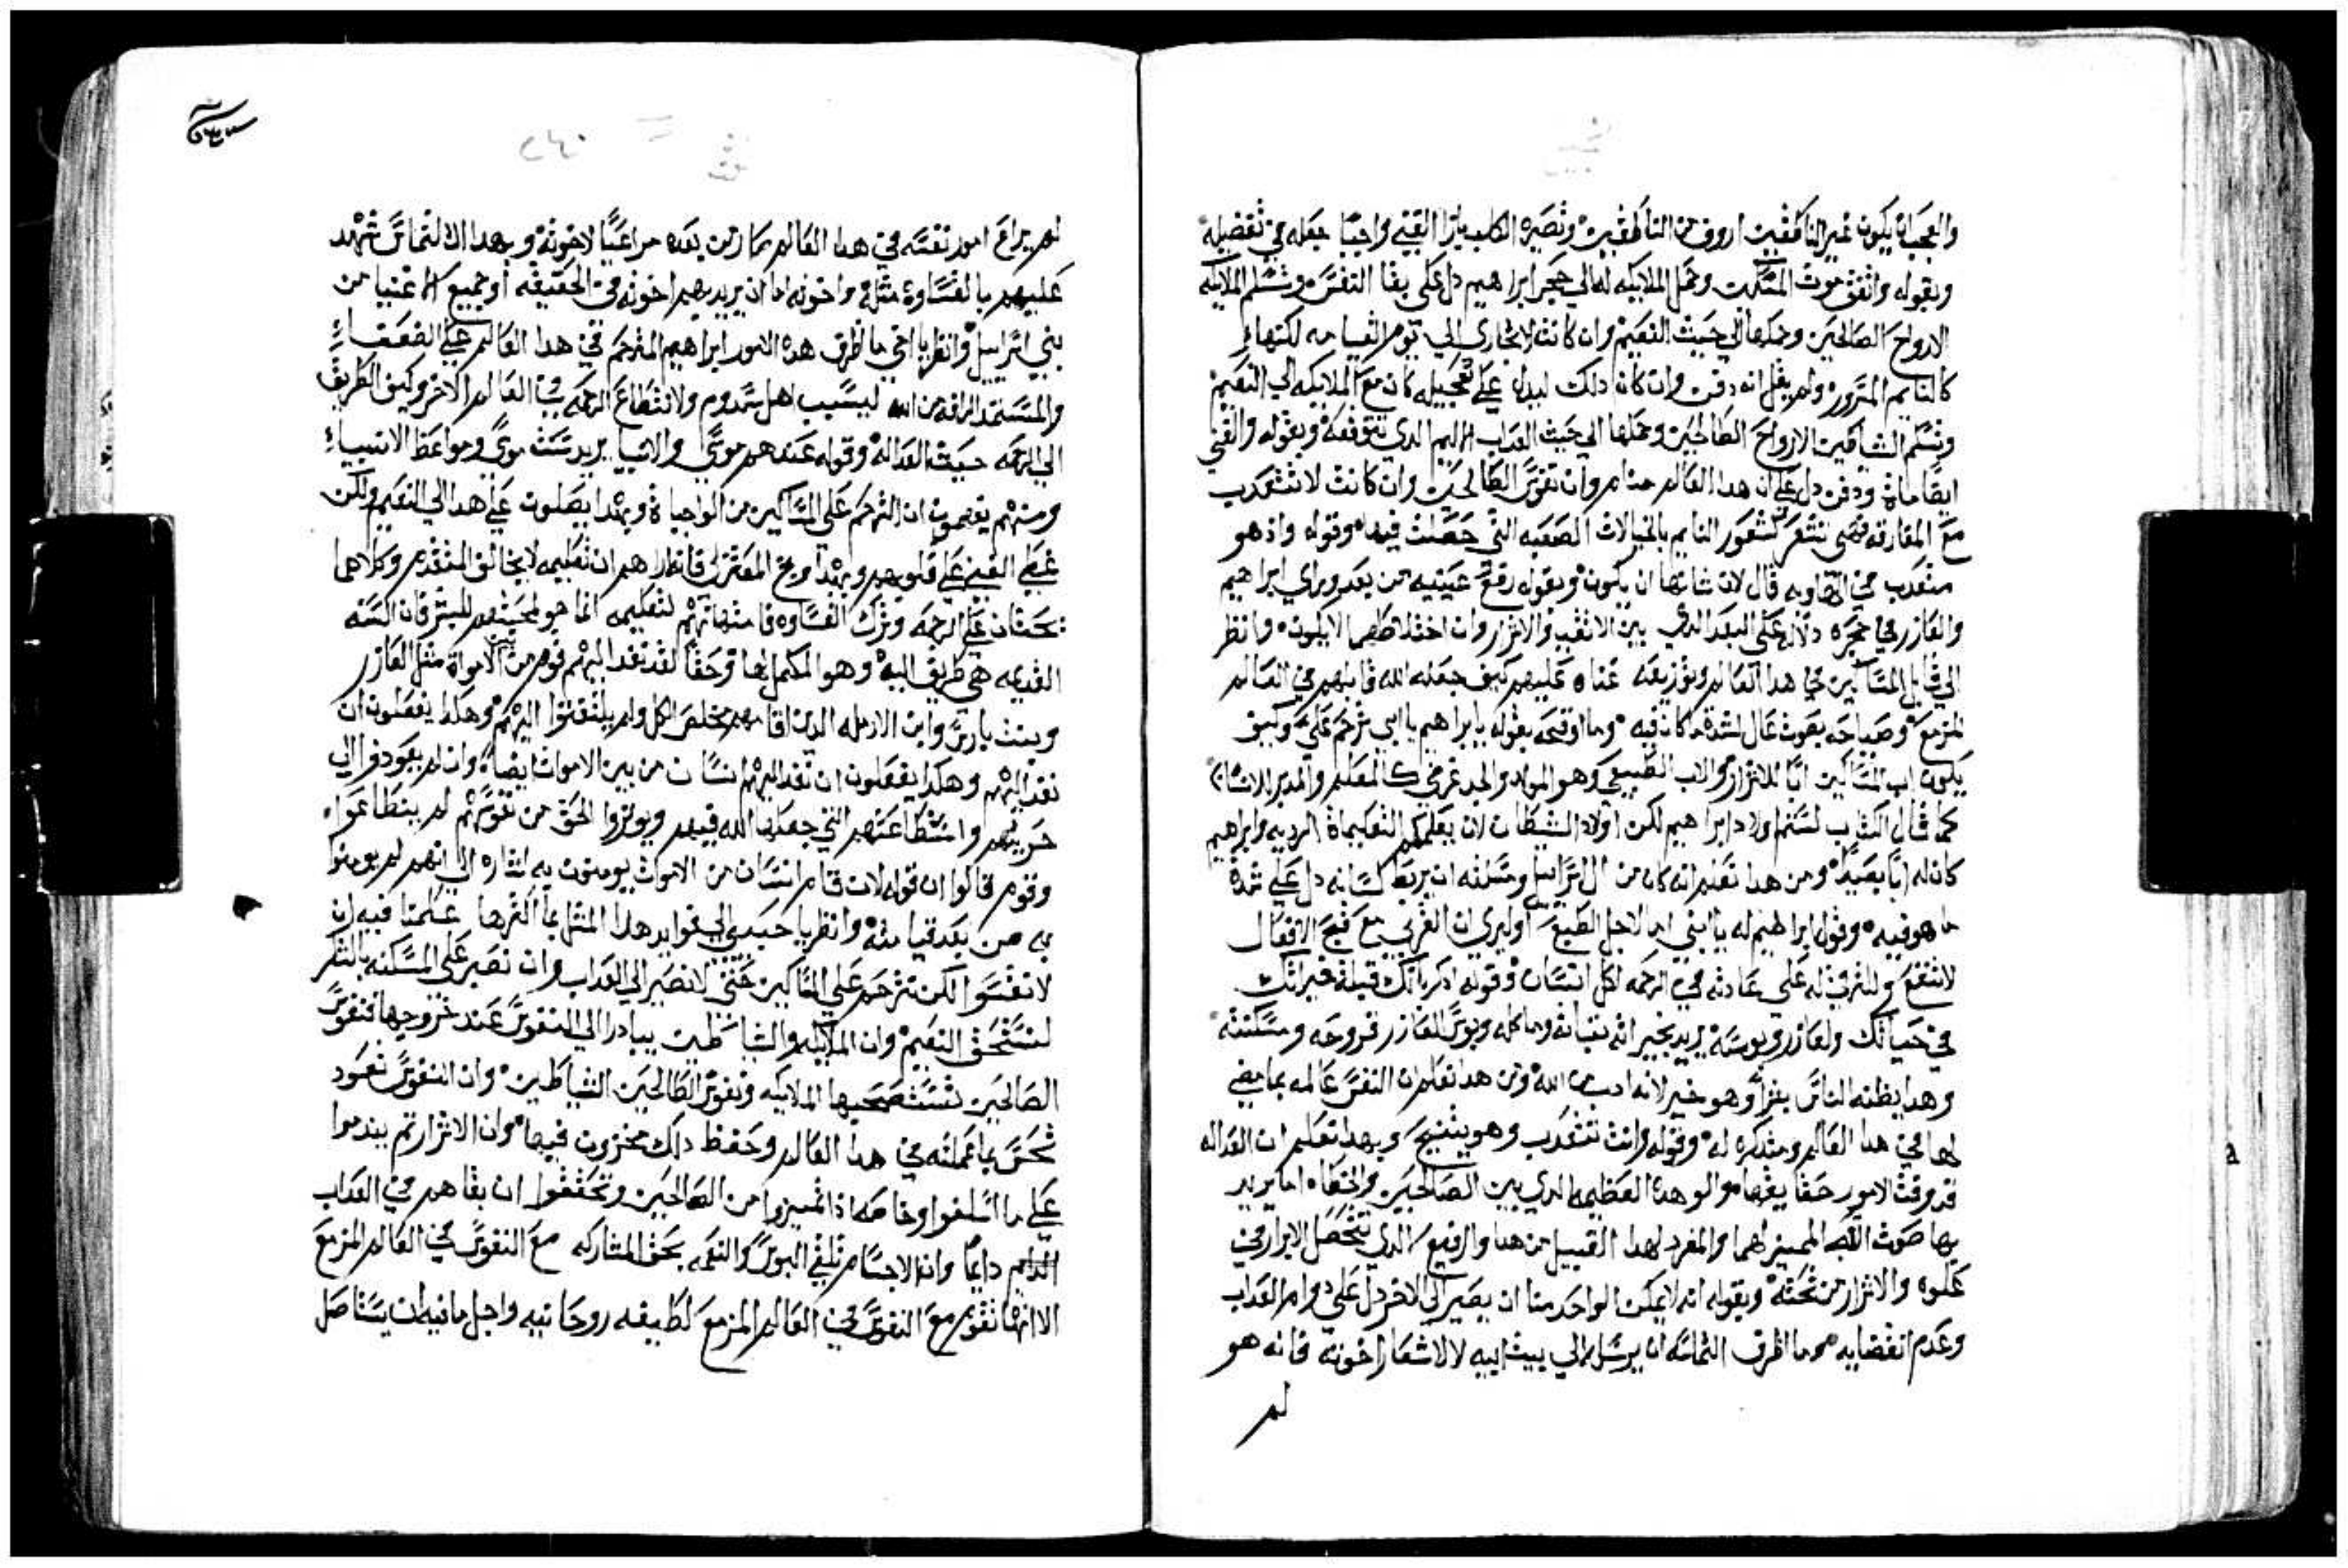 والعجب ان يكون غير الناطقين اروف من الناطقين وتصيره الكلب بازا الغني واجبًا جعله في تفضيله
وبقوله واتفق موت المسكين وحمل الملايكه له الي حجر ابراهيم دل علي بقا النفس وتسلم الملايكه
الارواح الصالحين وحملها الي حيث النعيم وان كانت لا تجازي الي يوم القيامه لكنها
كالنايم المسرور ولم يقل انه دفن وان كان دلك ليدل علي تعجيله كان مع الملايكه الي النعيم
وتسلم الشياطين الارواح الطالحين وحملها الي حيث العداب الاليم الدي تتوقعه وبقوله والغني
ايضًا مات ودفن دل علي ان هدا العالم منام وان نفوس الطالحين وان كانت لا تتعدب
مع المفارقه فهي تشعر كشعور النايم بالخيالات الصعبه التي حصلت فيها وقوله واذ هو
متعدب في الهاويه قال لان شانها ان يكون وبقوله رفع عينيه من بعد وراي ابراهيم
والعازر في حجره دلاله علي البعد الدي بين الاتقيا والاشرار وان اختلاطهم لا يكون وانظر
الي قابل المساكين في هدا العالم وتوزيعه غناه عليهم كيف جعله الله قابلهم في العالم
المزمع وصياحه بصوت عال لشدة ما كان فيه وما اوقحه بقوله يا ابراهيم يا ابي ترحم علي وكيف
يكون اب المساكين ابًا للاشرار والاب الطبيعي وهو المولد والجد عرضي كالمعلم والمدبر للانسان
كما قال الكتاب لستم اولاد ابراهيم لكن اولاد الشيطان لان يعلمكم التعليمات الرديه وابراهيم
كان له ابًا بعيدًا ومن هدا تعلم انه كان من ال اسراييل ومسلته ان يربط لسانه دل علي شدة
ما هو فيه وقول ابراهيم له يا ابني اما لاجل الطبع او ليري ان القربي مع قبح الافعال
لا تنفع وللترقق له علي عادته في الرحمه لكل انسان وقوله ادكر انك قبلت خيراتك
في حياتك ولعازر وبوسه يريد بخيراته نباته وماكله وبوس العازر قروحه ومسكنته
وهدا يظنه الناس بفرا وهو خير لانه ادب من الله ومن هدا تعلم ان النفس عالمه بما مضي
لها في هدا العالم ومتدكره له وقوله وانت تتعدب وهو يتنيح وبهدا تعلم ان العداله
قد وفت الامور حقايقها والوهده العظيمه الدي بين الصالحين والخطاه اما يريد
بها صوت الله المميز لهما والمفرد لهدا القبيل من هدا والرفيع الدي تتحصل الابرار في
علوه والاشرار من تحته وبقوله انه لا يمكن الواحد منا ان يصير الي الاخر دل علي دوام العداب
وعدم انقضايه وما اظرف التماسه ان يرسل الي بيت ابيه لاشعار اخوته فانه هو
لم
٢٤٠
لم يراع امور نفسه في هدا العالم صار من بعده مراعيًا لاخوته وبهدا الالتماس شهد
عليهم بالقساوة مثله واخوته اما ان يريد بهم اخوته في الحقيقه او جميع الاغنيا من
بني اسراييل وانظر يا اخي ما اظرف هده الامور ابراهيم المترحم في هدا العالم علي الضعفاء
والمستمد الرافه من الله لبسبب اهل سدوم ولانقطاع الرحمه في العالم الاخر وكيف الطريق
الي الرحمه حيث العداله وقوله عندهم موسي والانبيا يريد سنت موسي ومواعظ الانبياء
ومنهم يفهمون ان الترحم علي المساكين من الواجبات وبهدا يصلون علي هدا الي النعيم ولكن
غطي الغني علي قلوبهم وبهدا وبخ المفترك فانه اراهم ان تعليمه لا يخالف المتقدم وكلاهما
يحتان علي الرحمه وترك القساوه فامتهانهم لتعليمه انما هو لمحبتهم للبشر فان السنه
القديمه هي طريق اليه وهو المكمل لها وحقًا لقد نفد اليهم قوم من بين الاموات مثل العازر
وبنت يارس وابن الارمله الدين اقامهم مخلص الكل ولم يلتفتوا اليهم وهكدا يفعلون ان
نفد اليهم وهكدا يفعلون ان نفد اليهم انسان من بين الاموات ايضًا وان لم يعودوا الي
حريتهم واستطاعتهم التي جعلها الله فيهم ويوتروا الحق من نفوسهم لم ينطاعوا
وقوم قالوا ان قوله لان قام انسان من الاموات يومنون به اشاره الي انهم لم يومنوا
به من بعد قيامته وانظر يا حبيبي الي فوايد هدا المثل بما اكثرها علمنا فيه ان
لا نقسوا لكن نترحم علي المساكين حتي لا نصير الي العداب وان نصبر علي المسكنه بالشكر
لنستحق النعيم وان الملايكه والشياطين يبادرا الي النفوس عند خروجها فنفوس
الصالحين تستصحبها الملايكه ونفوس الطالحين الشياطين وان النفوس تعود
تحس بما عملته في هدا العالم وحفظ دلك مخزون فيها وان الاشرار تم يندموا
علي ما اسلفوا وخاصه اذا تميزوا من الصالحين وتحققوا ان بقاهم في العداب
الدايم دايمًا وان الاجسام تلقي البوس والنعمه بحق المشاركه مع النفوس في العالم المزمع
الا انها تقوم مع النفوس في العالم المزمع لطيفه روحانيه واجل ما فيه ان يستاصل